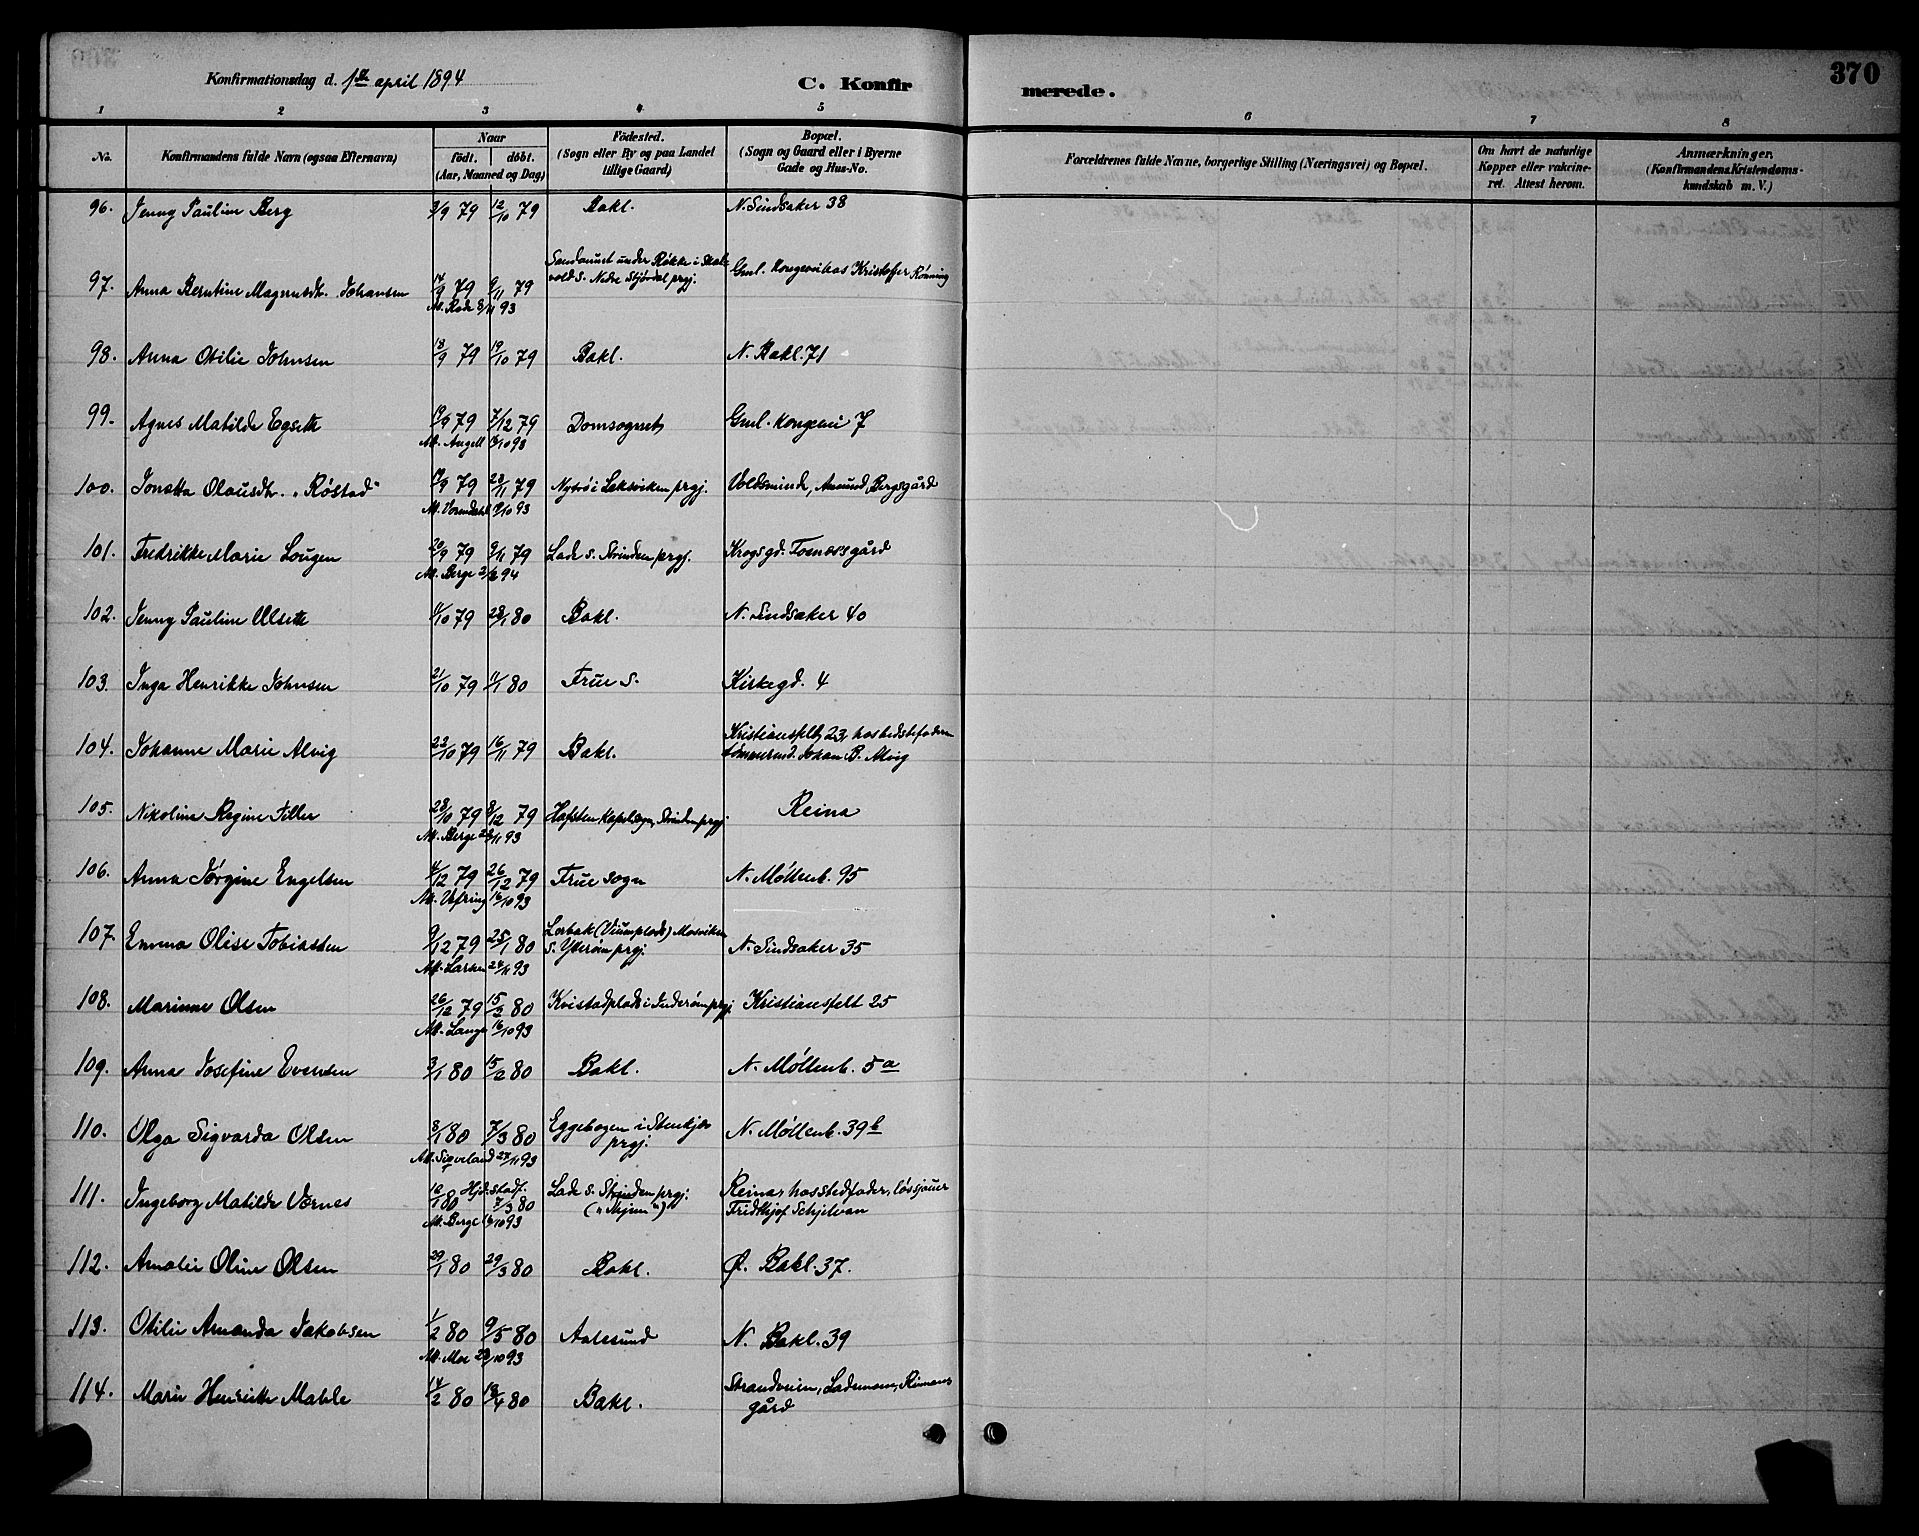 370
Konfirmationsdag d. 1ste april 1894
C. Konfirmerede.
1 2 3 4 5 6 7 8
No. Konfirmandens fulde Navn (ogsaa Efternavn)
Naar
født. døbt.
(Aar, Maaned og Dag)
Fødested.
(Sogn eller By og paa Landet
tillige Gaard)
Bopæl.
(Sogn og Gaard eller i Byerne
Gade og Hus-No.
Forældrenes fulde Navne, borgerlige Stilling (Næringsvei) og Bopæl.
Om havt de naturlige
Kopper eller vakcine-
ret. Attest herom.
Anmærkninger.
(Konfirmandens Kristendoms-
kundskab m. V.)
96. Jenny Pauline Berg 3/9 79 12/10 79 Bakl. N. Sindsaker 38
97. Anna Berntine Magnusdt. Johansen 14/9 79 9/11 79 under Røkke i Skat-
vold S. Nedre Stjørdal prgj. Gml. Kongevei hos Kristoffer Rønning
98. Anna Otilie Johnsen 18/9 79 19/10 79 Bakl. N. Bakl. 71
99. Agnes Matilde Egseth 19/9 79 7/12 79 Domsognet Gml. Kongevei 7
Att. Angell 10 93
100. Jonetta Olausdt. "Røstad" 19/9 79 23/11 79 Nytrø i Leksviken prgj. Voldsminde, Amund Bergsgård
101. Fredrikke Marie Lougen 20/9 79 9/11 79 Lade S. Strinden prgj. Krogsgd. Tomasgård
Att. Berge 94
102. Jenny Pauline Ulseth 1/10 79 28/1 80 Bakl. N. Sindsaker 40
103. Inga Henrikke Johnsen 21/10 79 1/1 80 Frue S. Kirkegd. 4
104. Johanne Marie Alvig 22/10 79 16/11 79 Bakl. Kristiansfelt 23, hos bedstefaderen
tømmermd. Johan B. Alvig
105. Nikoline Regine Tiller 28/10 79 8/12 79 Hafsten kapelsogn, Strinden prgj. Reina
Att. Berge 11 93
106. Anna Jørgine Engelsen 4/12 79 26/12 79 Frue sogn N. Møllenb. 95
107. Emma Olise Tobiassen 9/12 79 25/1 80 Mosviken
S. Ytterøen prgj. N. Sindsaker 35
Att. Larsen 24/11 93
108. Marinne Olsen 26/12 79 15/2 80 Kvistadplads i Inderøen prgj. Kristiansfelt 25
Att. Lange 16/10 93
109. Anna Josefine Evensen 3/1 80 15/2 80 Bakl. N. Møllenb. 5 a
110. Olga Sigvarda Olsen 8/1 80 7/3 80 Eggebogen i Stenkjær
prgj. N. Møllenb. 39 b
Att. Sigveland 27/11 93
111. Ingeborg Matilde Værnes 10/1 80 Hjd. stadf. 7/3 80 Lade S. Strinden prgj. Reina, hos stedfader, løssjauer
Fridthjof Schjelvan
Att. Berge 10 93
112. Amalie Oline Olsen 29/1 80 29/3 80 Bakl. Ø. Bakl. 37.
113. Otilie Amanda Jakobsen 1/2 80 9/5 80 Aalesund N. Bakl. 39
Att. Moe 23/10 93
114. Marie Henrikke Mahle 14/2 80 18/4 80 Bakl. Strandveien, Lademoen, Reimans
gård